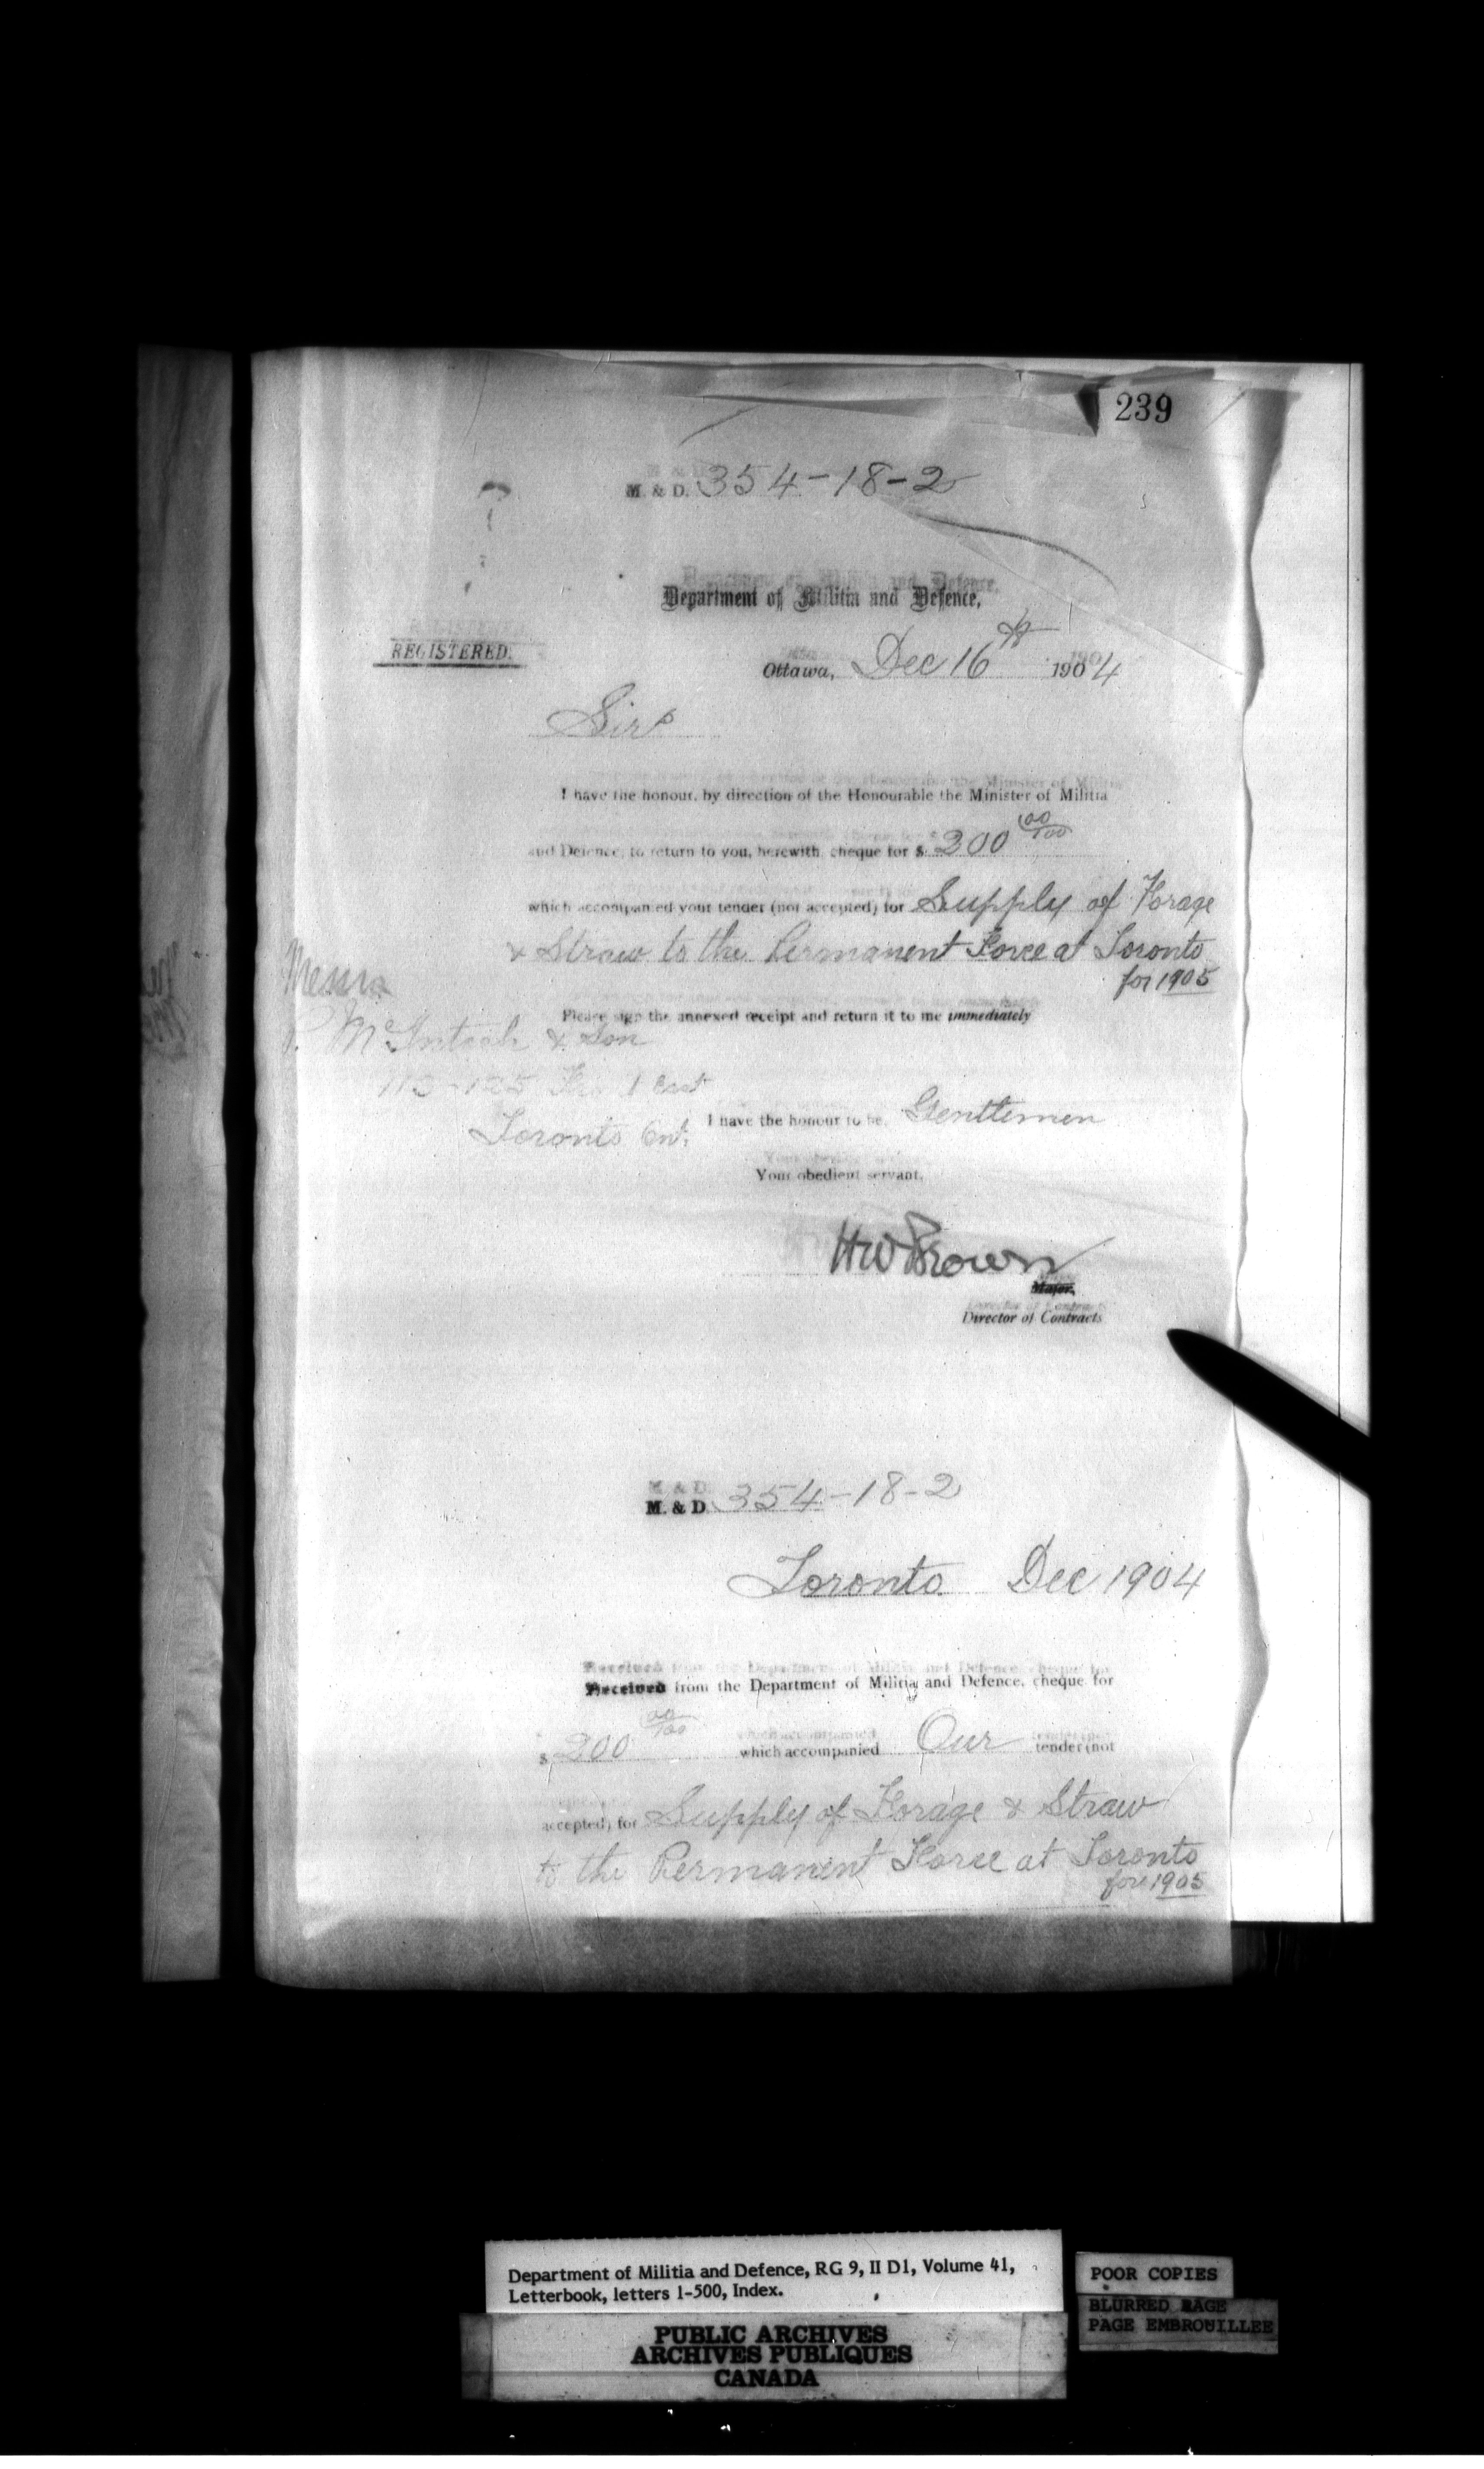 239
M. & D. 354-18-2
Department of Militia and Defence,
REGISTERED.
Ottawa, Dec 16th 1904
Sirs
I have the honour, by direction of the Honourable the Minister of Militia
and Defence, to return to you, herewith, cheque for $ 200 00/100
which accompanied your tender (not accepted) for Supply of Forage
& Straw to the Permanent Force at Toronto
for 1905
Please sign the annexed receipt and return it to me immediately
Messrs
McIntosh & Son
East
Toronto Ont.
I have the honour to be, Gentlemen
Your obedient servant,
HW Brown
Major,
Director of Contracts
M. & D. 354-18-2
Toronto Dec 1904
Received from the Department of Militia and Defence, cheque for
$ 200 00/100 which accompanied Our tender (not
accepted) for Supply of Forage & Straw
to the Permanent Force at Toronto
for 1905
Department of Militia and Defence, RG 9, II D1, Volume 41,
Letterbook, letters 1-500, Index.
PUBLIC ARCHIVES
ARCHIVES PUBLIQUES
CANADA
POOR COPIES
BLURRED PAGE
PAGE EMBROUILLEE